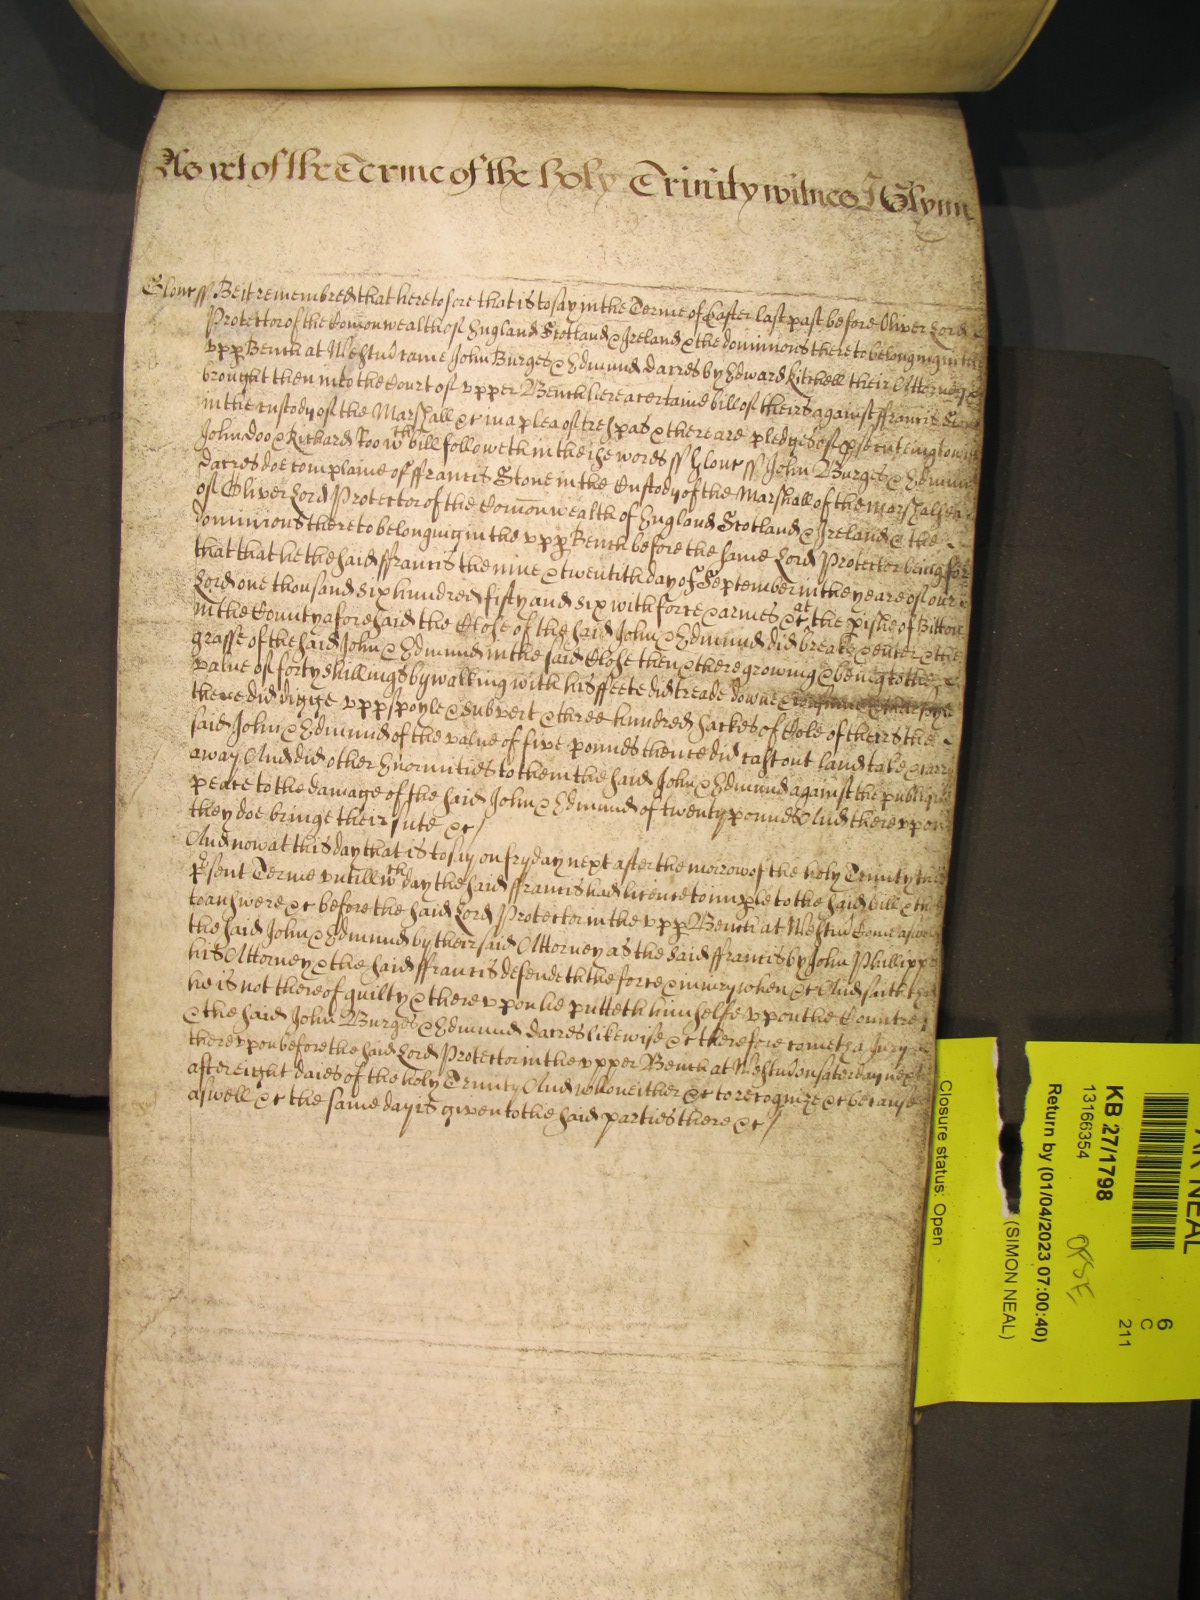 As yet of the Terme of the holy Trinity witnes J Glynn
Glouc ss Be it remembred that heretofore that is to say in the Terme of Easter last past before Oliver Lord
Protector of the Comonwealth of England Scotland & Ireland & the dominions thereto belonging in the
vpp Bench at Westm came John Burges & Edmund dacres by Edward Kitchell their Attorney &
brought then into the Court of vpper Bench here a certaine bill of theirs against ffrancis Stone
in the custody of the Marshall &c in a plea of trespas & there are pledges of psecuteing to wit
John doo & Richard Roo wch bill followeth in these words ss Glouc ss John Burges & Edmund
dacres doe complaine of ffrancis Stone in the Custody of the Marshall of the marshalsea
of Oliver Lord Protector of the Comonwealth of England Scotland & Ireland & the
dominions thereto belonging in the vpp Bench before the same Lord Protector being for
that that he the said ffrancis the nine & twentith day of September in the yeare of our
Lord one thousand six hundred fifty and six with force & armes &c at the pishe of Bitton
in the County aforesaid the Close of the said John & Edmund did breake & enter & the
grasse of the said John & Edmund in the said Close then & there growing & being to the
value of forty shillings by walking with his ffeete did treade downe &
there did digge vpp spoyle & subvert & three hundred sackes of Cole of theirs the
said John & Edmund of the value of five pounds thence did cast out land take & carry
away And did other Enormities to them the said John & Edmund against the publique
peace to the damage of the said John & Edmund of twenty pounds And therevpon
they doe bringe their sute &c/
And now at this day that is to say on fryday next after the morrow of the holy Trinity this
psent Terme vntill wch day the said ffrancis had licence to imple to the said bill & the
to answere &c before the said Lord Protector in the vpp Bench at Westm Come aswell
the said John & Edmund by their said Attorney as the said ffrancis by John Phillipps
his Attorney & the said ffrancis defendeth the force & iniury when &c And saith that
he is not thereof guilty & therevpon he putteth himselfe vpon the Countrey
& the said John Burges & Edmund dacres likewise &c therefore cometh a Jury
therevpon before the said Lord Protector in the vpper Bench at Westm on saterday next
after eight daies of the holy Trinity And who neither &c to recognize &c because
aswell &c the same day is given to the said parties there &c/
AR NEAL
6
C
211
KB 27/1798
13166354
ORSE
Return by (01/04/2023 07:00:40)
(SIMON NEAL)
Closure status: Open